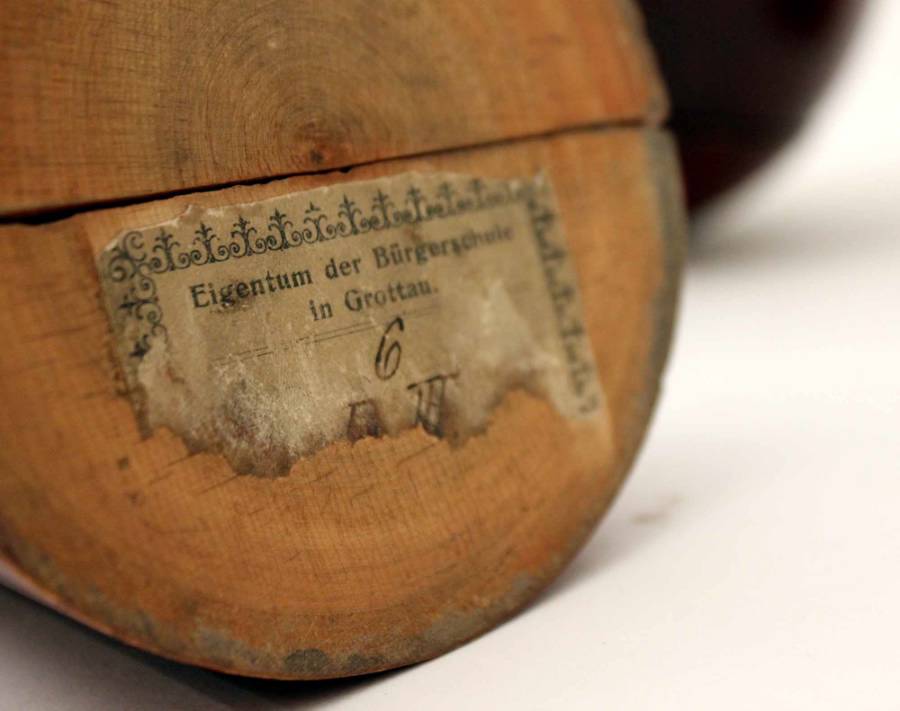 Eigentum der Bürgerschule
in Grottau.
6
VI